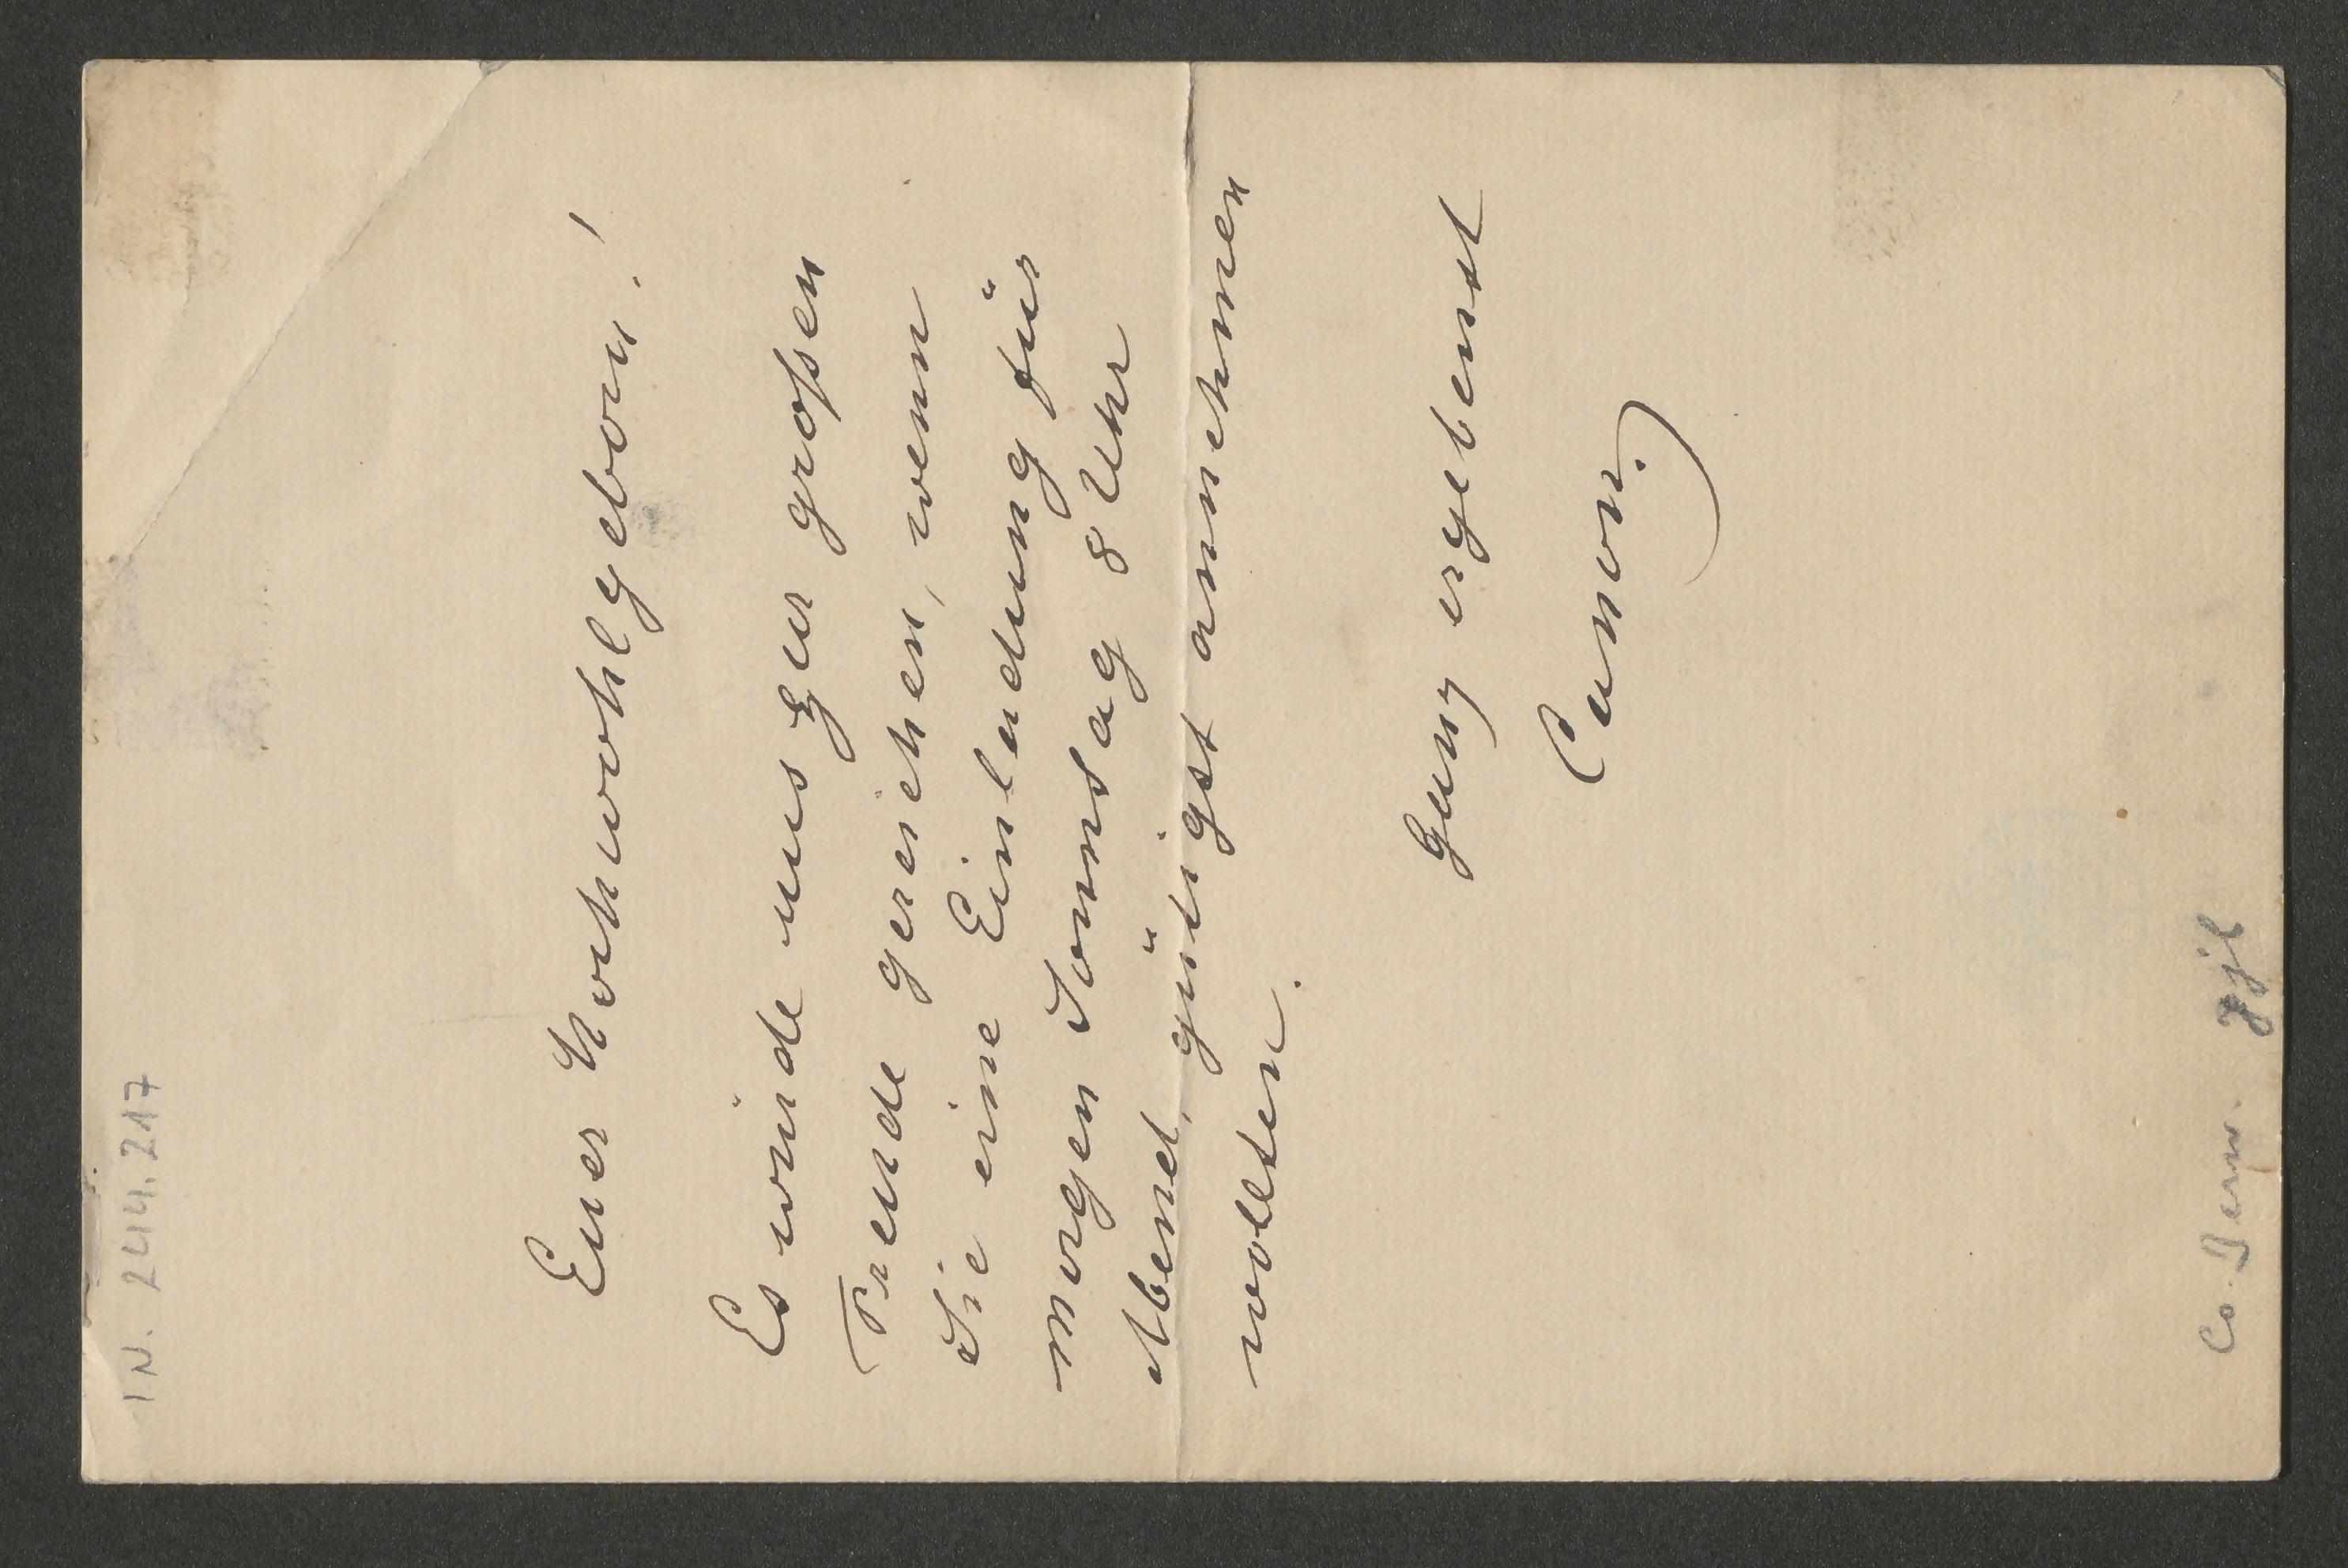 IN. 244.217
Euer Hochwohlgeborn!
Es würde uns zur großen
Freude gereichen, wenn
Sie eine Einladung für
morgen Sonntag 8 Uhr
Abend, gütigst annehmen
wollten.
Ganz ergebenst
Canon.
Co.